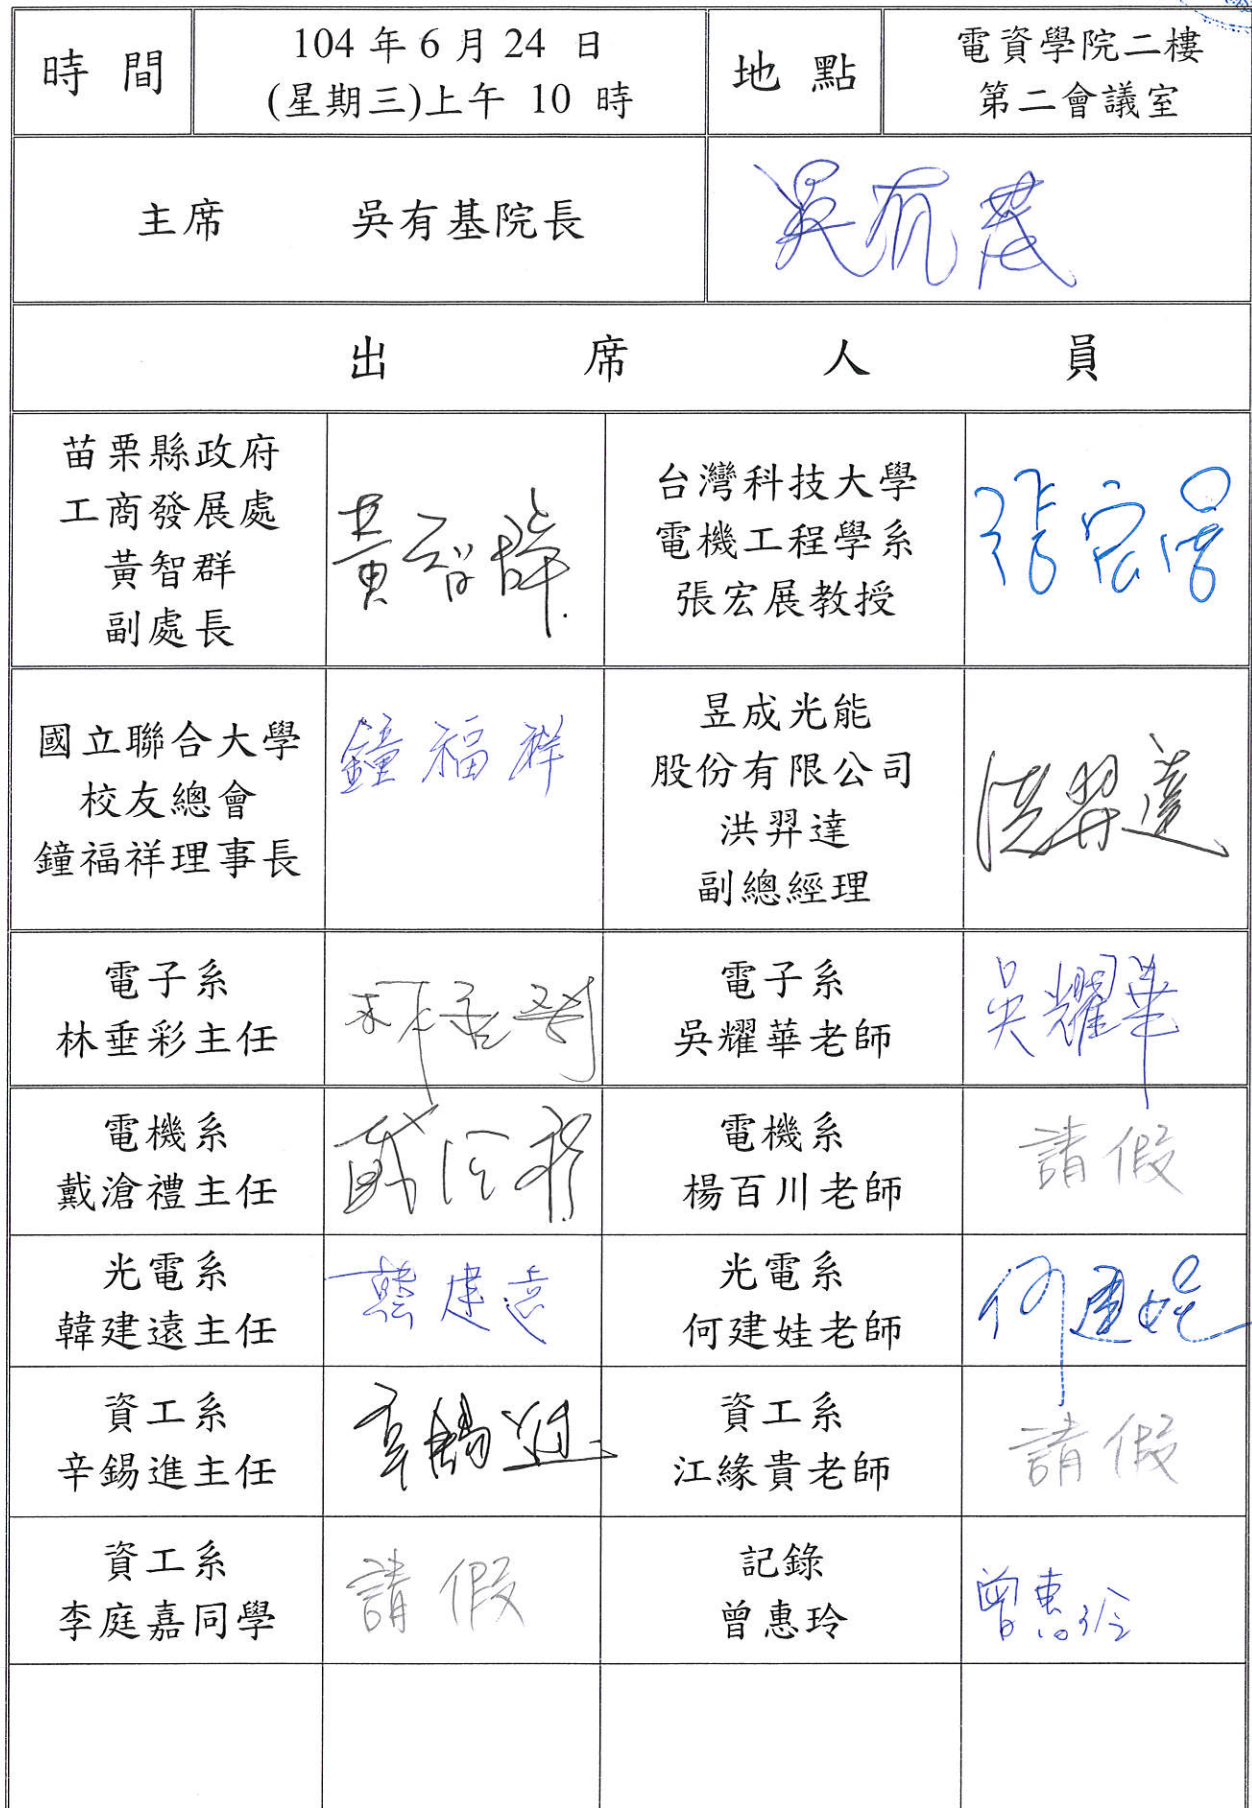 時 間
104 年 6 月 24 日
(星期三)上午 10 時
地 點
電資學院二樓
第二會議室
主席 吳有基院長
吳有基
出 席 人 員
苗栗縣政府
工商發展處
黃智群
副處長
黃智群
台灣科技大學
電機工程學系
張宏展教授
張宏展
國立聯合大學
校友總會
鐘福祥理事長
鐘福祥
昱成光能
股份有限公司
洪羿達
副總經理
洪羿達
電子系
林垂彩主任
林垂彩
電子系
吳耀華老師
吳耀華
電機系
戴滄禮主任
戴滄禮
電機系
楊百川老師
請假
光電系
韓建遠主任
韓建遠
光電系
何建娃老師
何建娃
資工系
辛錫進主任
辛錫進
資工系
江緣貴老師
請假
資工系
李庭嘉同學
請假
記錄
曾惠玲
曾惠玲